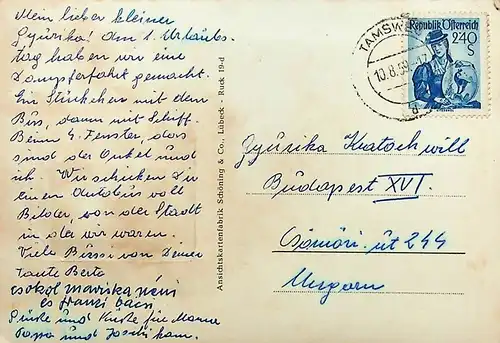 Mein lieber kleiner
Gyurika! Am 1. Urlaubs-
tag haben wir eine
Dampferfahrt gemacht.
Ein Stückchen mit dem
Bus, dann mit Schiff.
Beim 4. Fenster, das
sind der Onkel und
ich. Wir schicken Dir
einen Autobus voll
Bilder, von der Stadt
in der wir waren.
Viele Bussi von Deiner
Tante Berta
csokol mariska néni
és franzi bácsi
Grüße und Küsse für Mama
Papa und
Ansichtskartenfabrik Schöning & Co., Lübeck - Ruck 19-d
TAMSW
10.8.59
Republik Österreich
2.40
S
Gyurika Katsch will
Budapest XVI.
Csömöri út 244
Ungarn